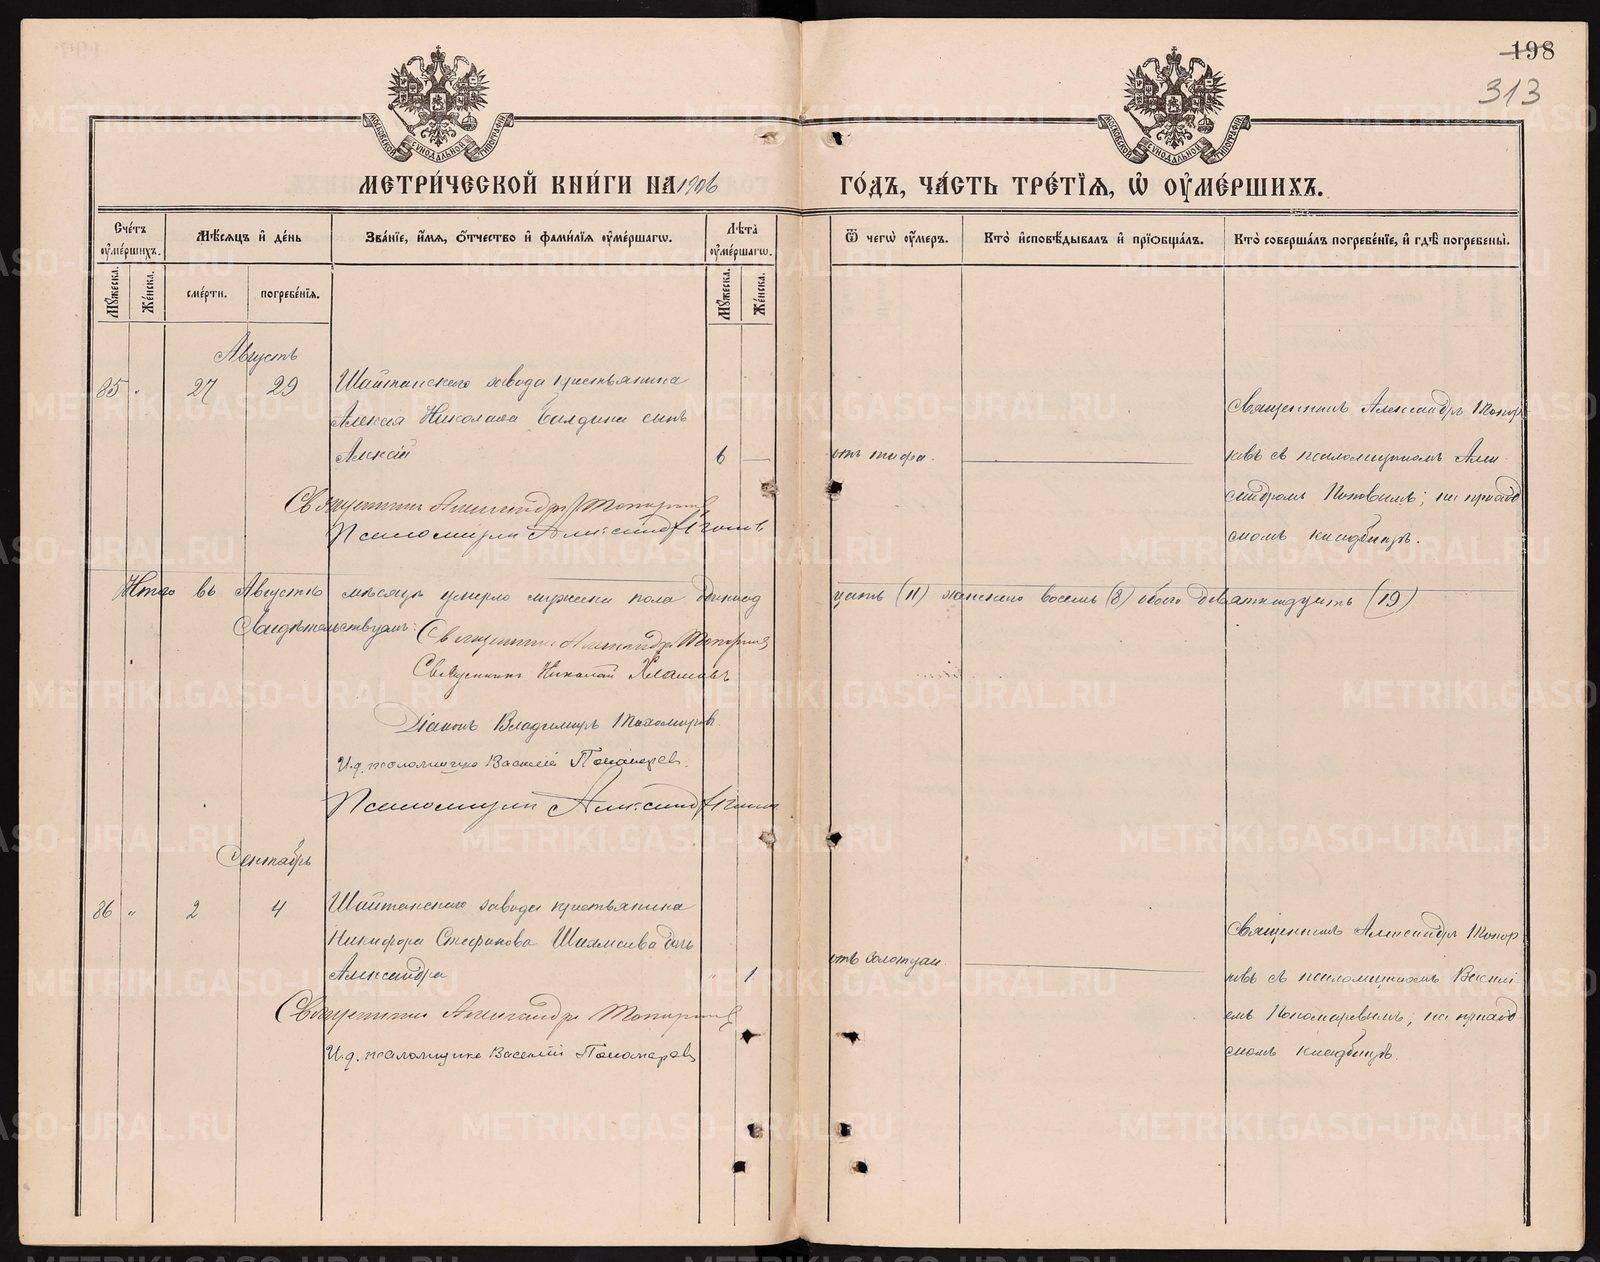 198
313
МОСКОВСКОЙ СѴНОДАЛЬНОЙ ТИПОГРАФІИ
МОСКОВСКОЙ СѴНОДАЛЬНОЙ ТИПОГРАФІИ
МЕТРИ́ЧЕСКОЙ КНИ́ГИ НА 1906 ГО́ДЪ, ЧА́СТЬ ТРЕ́ТІѦ, Ѡ҆ ОУ҆МЕ́РШИХЪ.
Сче́тъ оу҆ме́ршихъ.
Мꙋ́жеска.
Же́нска.
Мѣ́сѧцъ и҆ де́нь
сме́рти.
погребе́нїѧ.
Зва́нїе, и҆́мѧ, ѻ҆́тчество и҆ фами́лїѧ оу҆ме́ршагѡ.
Лѣ́та оу҆ме́ршагѡ.
Мꙋ́жеска.
Же́нска.
Ѿ чегѡ̀ оу҆́меръ.
Кто̀ и҆сповѣ́дывалъ и҆ прїѡбща́лъ.
Кто̀ соверша́лъ погребе́нїе, и҆ гдѣ̀ погребены̀.
Августъ
85 " 27 29 Шайтанскаго завода крестьянина
Алексѣя Николаева Балдина сынъ
Алексѣй 6 —
отъ тифа.
Священникъ Александръ Топор
ковъ съ псаломщикомъ Алек
сандромъ Поповымъ; на приход
скомъ кладбищѣ.
Священникъ Александръ Топорковъ
Псаломщикъ Александръ
Итого въ Августѣ мѣсяцѣ умерло мужска пола одиннад
цать (11) женскаго восемь (8) обоего девятнадцать (19)
Свидѣтельствуемъ: Священникъ Александръ Топорковъ
Священникъ Николай Хламовъ
Діаконъ Владимиръ Тихомировъ.
И.д. псаломщика Василій Пономаревъ.
Псаломщикъ Александръ
Сентябрь
86 " 2 4 Шайтанскаго завода крестьянина
Никифора Стефанова дочь
Александра " 1
отъ золотухи.
Священникъ Александръ Топор
ковъ съ псаломщикомъ Василі
емъ Пономаревымъ; на приход
скомъ кладбищѣ.
Священникъ Александръ Топорковъ
И.д. псаломщика Василій Пономаревъ
METRIKI.GASO-URAL.RU